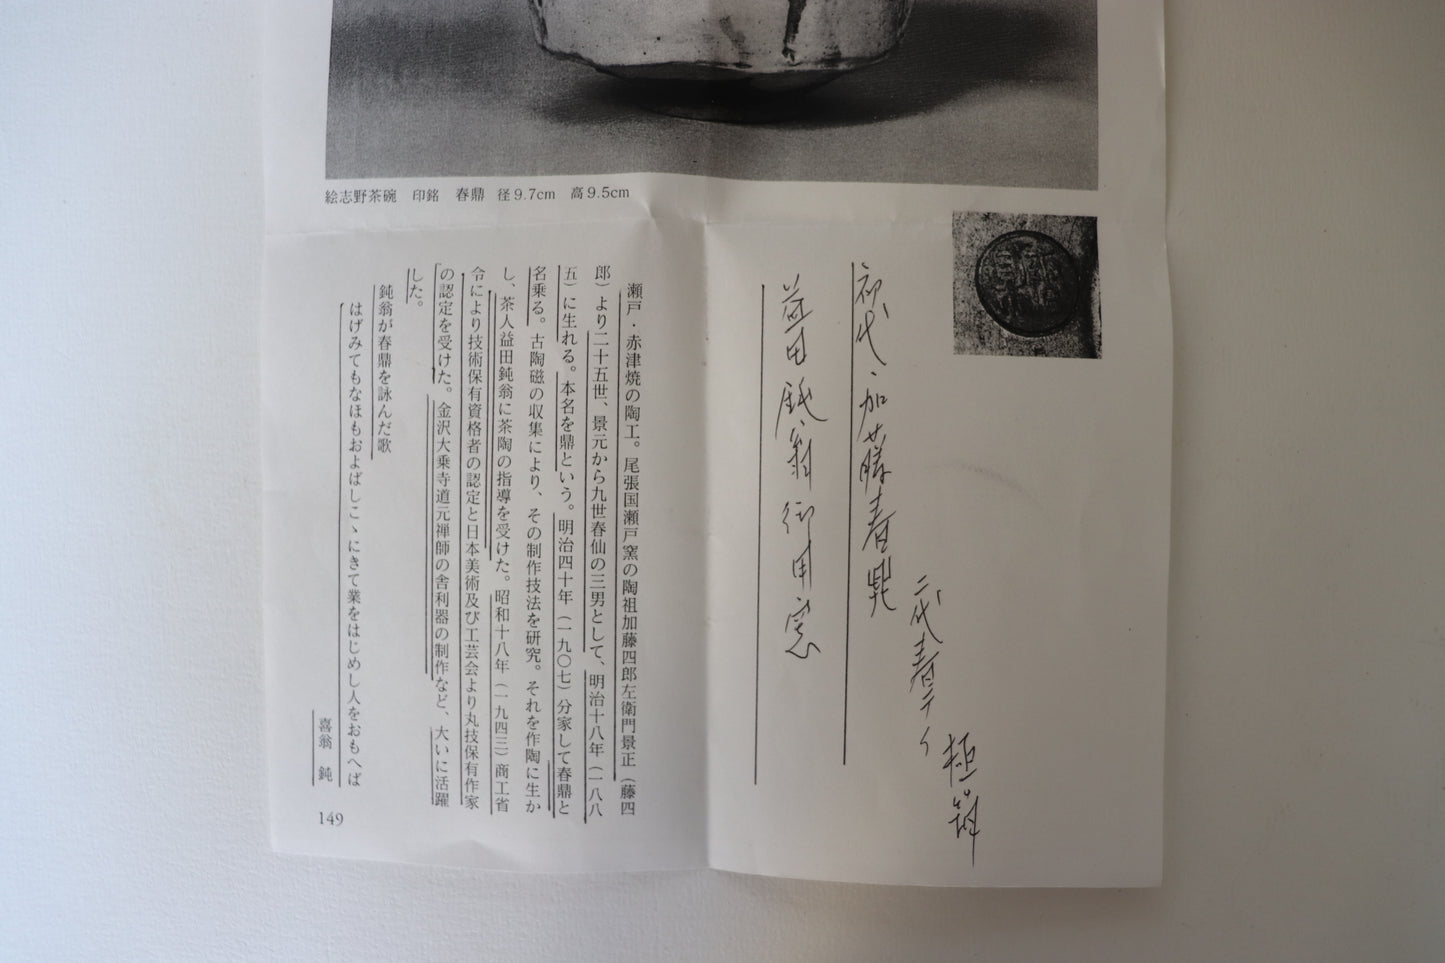 絵志野茶碗　印銘　春鼎　径9.7cm　高9.5cm
初代、加藤春鼎
二代春鼎
極箱
益田鈍翁御用窯
瀬戸・赤津焼の陶工。尾張国瀬戸窯の陶祖加藤四郎左衛門景正（藤四
郎）より二十五世、景元から九世春仙の三男として、明治十八年（一八八
五）に生れる。本名を鼎という。明治四十年（一九〇七）分家して春鼎と
名乗る。古陶磁の収集により、その制作技法を研究。それを作陶に生か
し、茶人益田鈍翁に茶陶の指導を受けた。昭和十八年（一九四三）商工省
令により技術保有資格者の認定と日本美術及び工芸会より丸技保有作家
の認定を受けた。金沢大乗寺道元禅師の舎利器の制作など、大いに活躍
した。
鈍翁が春鼎を詠んだ歌
はげみてもなほもおよばしこゝにきて業をはじめし人をおもへば
喜翁　鈍
149